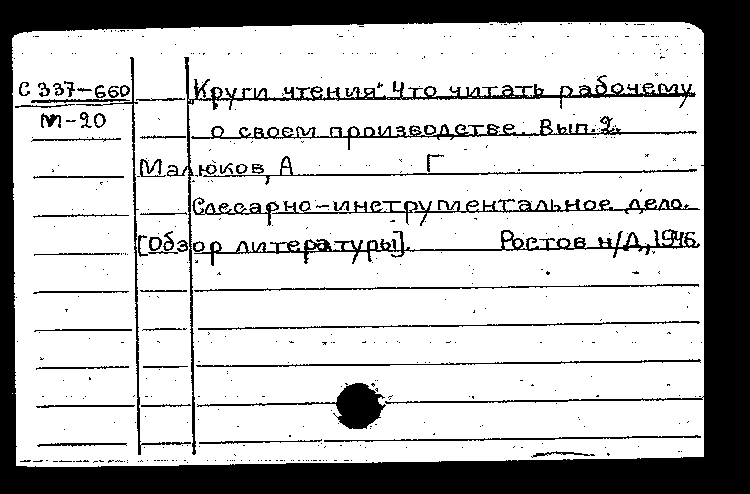 С 337-660 „Круги чтения" Что читать рабочему
М-20 о своем производстве. Вып. 2.
Малюков, А Г
Слесарно-инструментальное дело.
[Обзор литературы]. Ростов н/Д, 1946